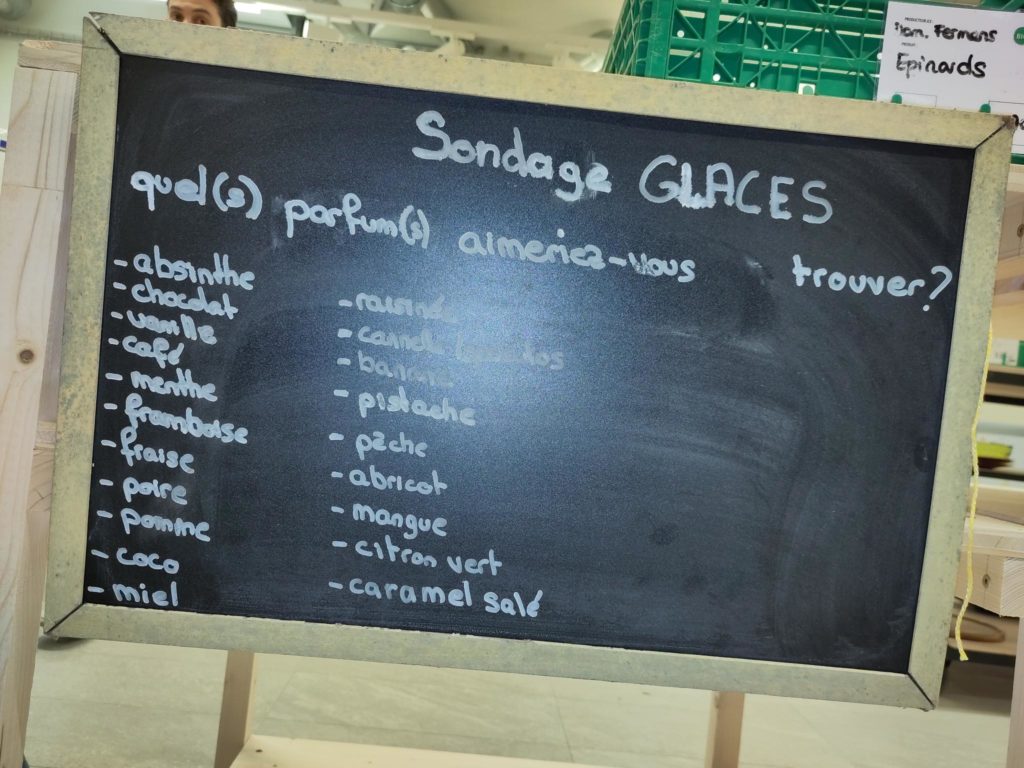 Sondage GLACES
quel(s) parfum(s) aimeriez-vous trouver?
- absinthe
- chocolat
- vanille
- café
- menthe
- framboise
- fraise
- poire
- pomme
- coco
- miel
- raisinée
- banane
- pistache
- pêche
- abricot
- mangue
- citron vert
- caramel salé
Fermens
Epinards